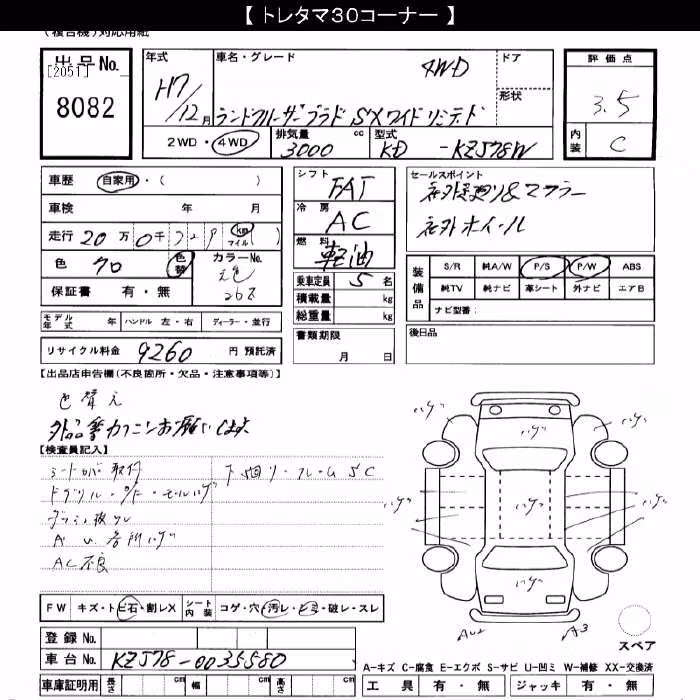 【 トレタマ30コーナー 】
(複合機)対応用紙
出品No.
[2051]
8082
年式
H7/12月
車名・グレード
4WD
ランドクルーザープラド SXワイド リミテッド
ドア
形状
評価点
3.5
内装
C
2WD・4WD
排気量
3000 cc
型式
KD -KZJ78W
車歴 自家用・( )
車検 年 月
走行 20万0千 km マイル ( )
色 クロ 色替
カラーNo.
元色
保証書 有・無
シフト FAT
冷房 AC
燃料 軽油
乗車定員 5 名
積載量 kg
総重量 kg
書類期限
月 日
セールスポイント
社外マフラー
社外ホイール
装備品
S/R 純A/W P/S P/W ABS
純TV 純ナビ 革シート 外ナビ エアB
ナビ型番:
モデル年式 年 ハンドル 左・右 ディーラー・並行
後日品
リサイクル料金 9260 円 預託済
【出品店申告欄(不良箇所・欠品・注意事項等)】
色替え
【検査員記入】
シートカバー取付
下回り・フレームSC
AC不良
ハゲ ハゲ ハゲ
ハゲ ハゲ ハゲ
ハゲ
AU2 A3
スペア
FW キズ・トビ石・割レX シート内装 コゲ・穴・汚レ・シミ・破レ・スレ
登録No.
車台No. KZJ78-0035580
A-キズ C-腐食 E-エクボ S-サビ U-凹ミ W-補修 XX-交換済
車庫証明用 長さ cm 幅 cm 高さ cm
工具 有・無 ジャッキ 有・無